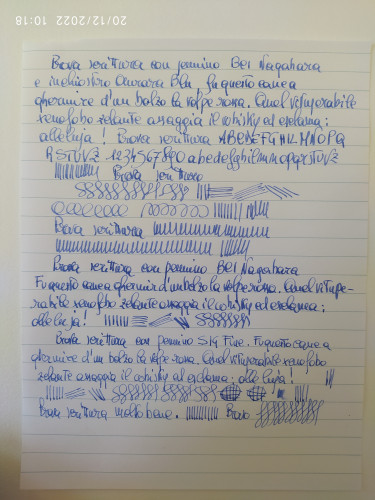 20/12/2022 10:18
Prova scrittura con pennino BEI Nagahara
e inchiostro Aurora Blu fu questo can a
ghermire d'un balzo la volpe rossa. Quel vituperabile
xenofobo zelante assaggia il whisky ed esclama:
alleluja! Prova scrittura ABCDEFGHILMNOPQ
RSTUVZ 1234567890 abcdefghilmnopqrstuvz
Prova scrittura
Prova scrittura
Prova scrittura con pennino BEI Nagahara
Fu questo can a ghermire d'un balzo la volpe rossa. Quel vitupe-
rabile xenofobo zelante assaggia il whisky ed esclama:
alleluja!
Prova scrittura con pennino SIG Fine. Fu questo can a
ghermire d'un balzo la volpe rossa. Quel vituperabile xenofobo
zelante assaggia il whisky ed esclama: alleluja!
Prova scrittura molto bene. Bravo